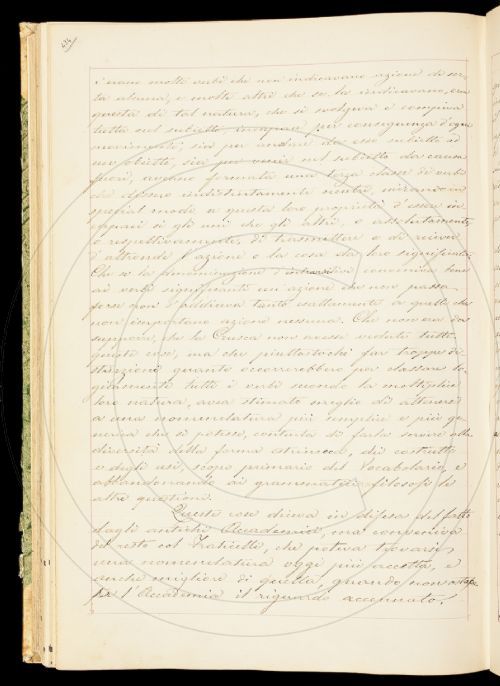 434
v'erano molti verbi che non indicavano azione di sor-
ta alcuna, e molti altri che se la indicavano, era
questa di tal natura, che si svolgeva e compiva
tutta nel subietto, per conseguenza d'ogni
movimento, sia per andare da esso subietto ad
un obietto, sia per venir nel subietto da causa
fuori, avevano formata una terza classe di verbi
che dissero indistintamente neutri, mirando in
special modo a questa loro proprietà d'essere in-
capaci sì gli uni che gli altri, o assolutamente
o respettivamente, di trasmettere o di ricever
d'altronde l'azione o la cosa da loro significata.
Che se la denominazione d'intransitivi conveniva bene
ai verbi significanti un'azione che non passa,
forse non s'addiceva tanto esattamente a quelli che
non importano azione nessuna. Che non era da
supporre, che la Crusca non avesse veduto tutte
queste cose, ma che piuttostochè far troppe di-
stinzioni quante occorrerebbero per classare lo-
gicamente tutti i verbi secondo la molteplice
loro natura, avea stimato meglio di attenersi
a una nomenclatura più semplice e più ge-
nerica che si potesse, contenta di farla servire alla
diversità della forma estrinseca, dei costrutti
e degli usi, scopo primario del Vocabolario, e
abbandonando ai grammatici filosofi le
altre questioni.
Queste cose diceva in difesa del fatto
dagli antichi Accademici, ma conveniva
del resto col Fraticelli, che poteva trovarsi
una nomenclatura oggi più accetta, e
anche migliore di quella, quando non ostas-
se l'Accademia il riguardo accennato.